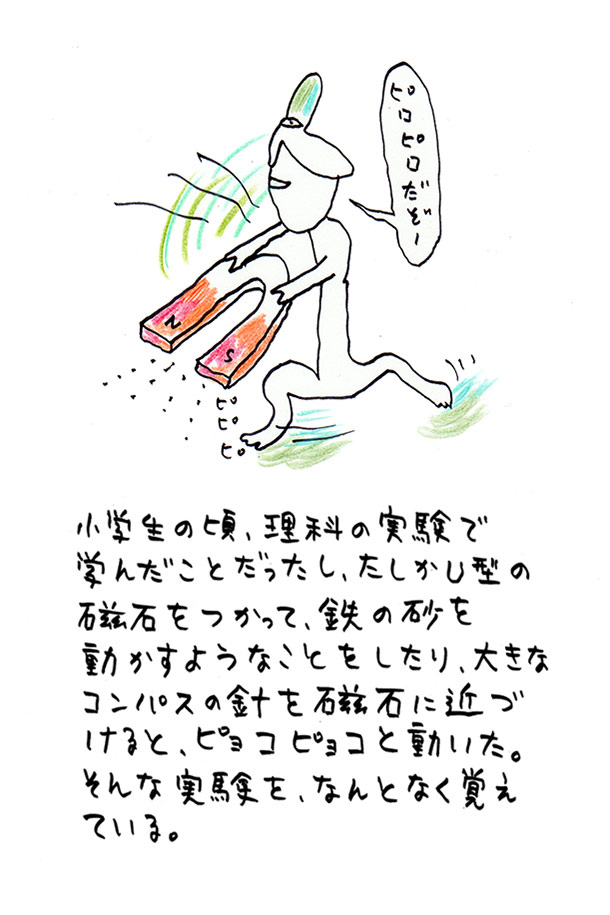 ピロピロだぞー
N
S
ピピピ
小学生の頃、理科の実験で
学んだことだったし、たしかU型の
磁石をつかって、鉄の砂を
動かすようなことをしたり、大きな
コンパスの針を磁石に近づ
けると、ピョコピョコと動いた。
そんな実験を、なんとなく覚え
ている。